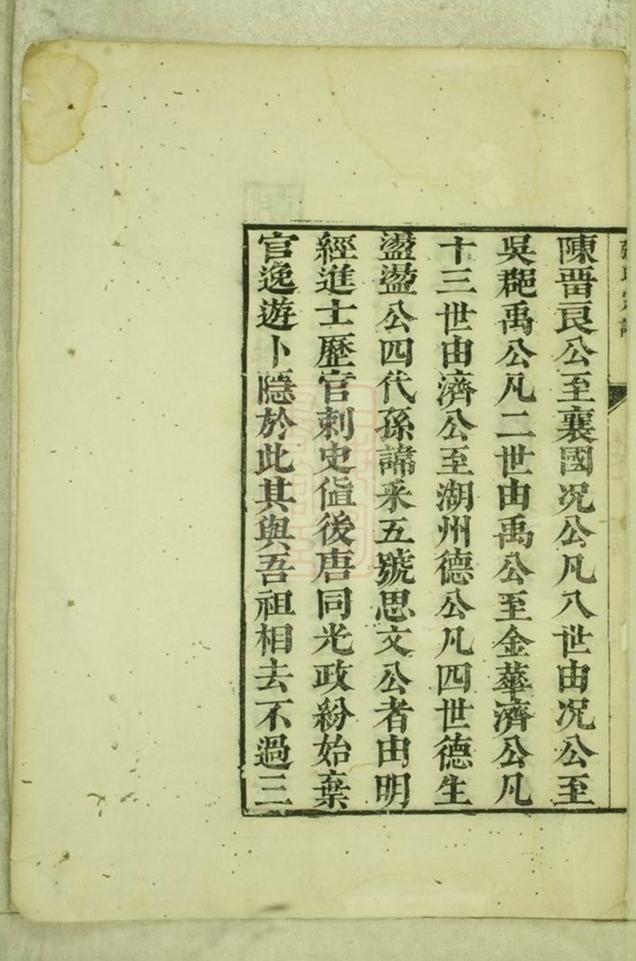 陳晋良公至襄國况公凡八世由况公至
吳郡禹公凡二世由禹公至金華濟公凡
十三世由濟公至湖州德公凡四世德生
盪盪公四代孫諱釆五號思文公者由明
經進士歷官刺史值後唐同光政紛始棄
官逸遊卜隱於此其與吾祖相去不過三